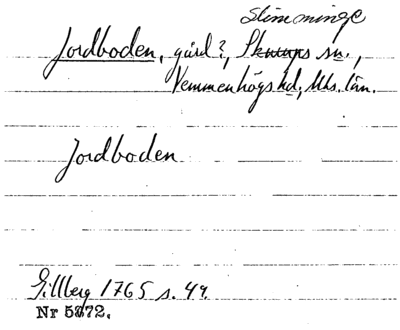 Slimminge
Jordboden, gård?, Skurups sn.,
Vemmenhögs hd, Mhs. län.
Jordboden
Gillberg 1765 s. 49.
Nr 5872.